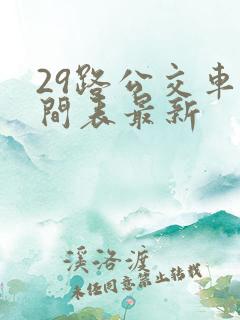 29路公交车
间表最新
溪洛渡
未经同意禁止转载